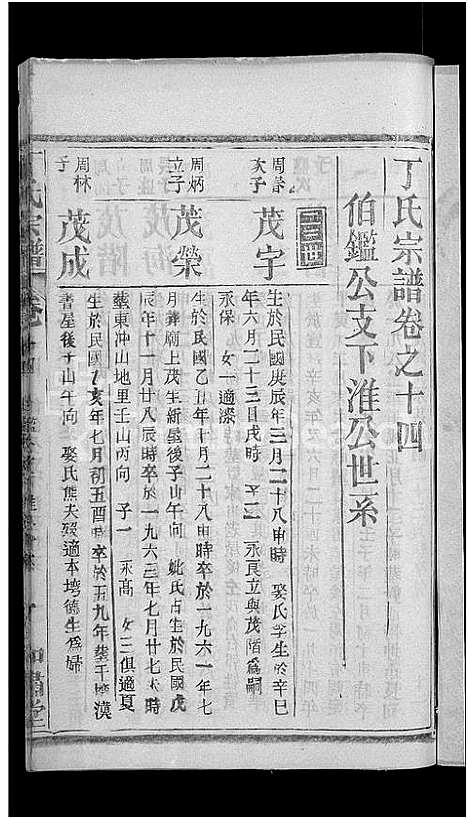 丁氏宗譜卷之十四
伯鑑公支下淮公世系
三三四
周 次子
茂宇
生於民國庚辰年三月二十八申時 娶氏李生於辛巳
年六月二十三日戌時 子二 永良立與茂階為嗣
永保 女一適漆
周炳 立子
茂榮
生於民國乙丑年十月二十八申時卒於一九六一年七
月葬廟上茂生新屋後子山午向 妣氏占生於民國戊
辰年十一月廿八辰時卒於一九六三年七月廿七未時
葬東冲山地里壬山丙向 子一 永高 女三俱適夏
周林 子
茂成
生於民國乙亥年七月初五酉時卒於五九年葬于 漢
書屋後子山午向 娶氏熊夫歿適本垮德生為婦
丁氏宗譜 卷十四